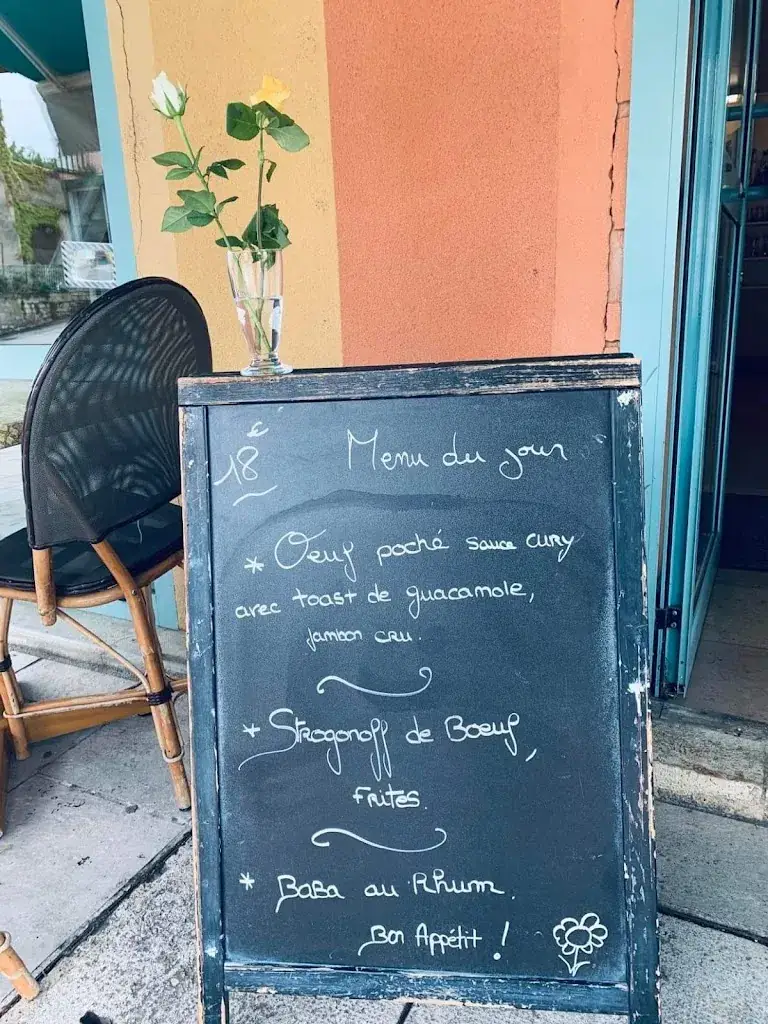 18€ Menu du jour
* Oeuf poché sauce CURY
avec toast de guacamole,
Jambon CRU.
* Strogonoff de Boeuf,
FRites.
* BaBa au Rhum.
Bon Appétit !